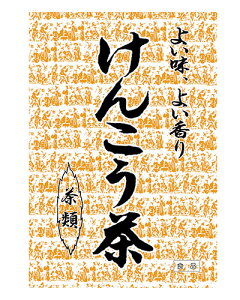 よい味、よい香り
けんこう茶
茶類
良品